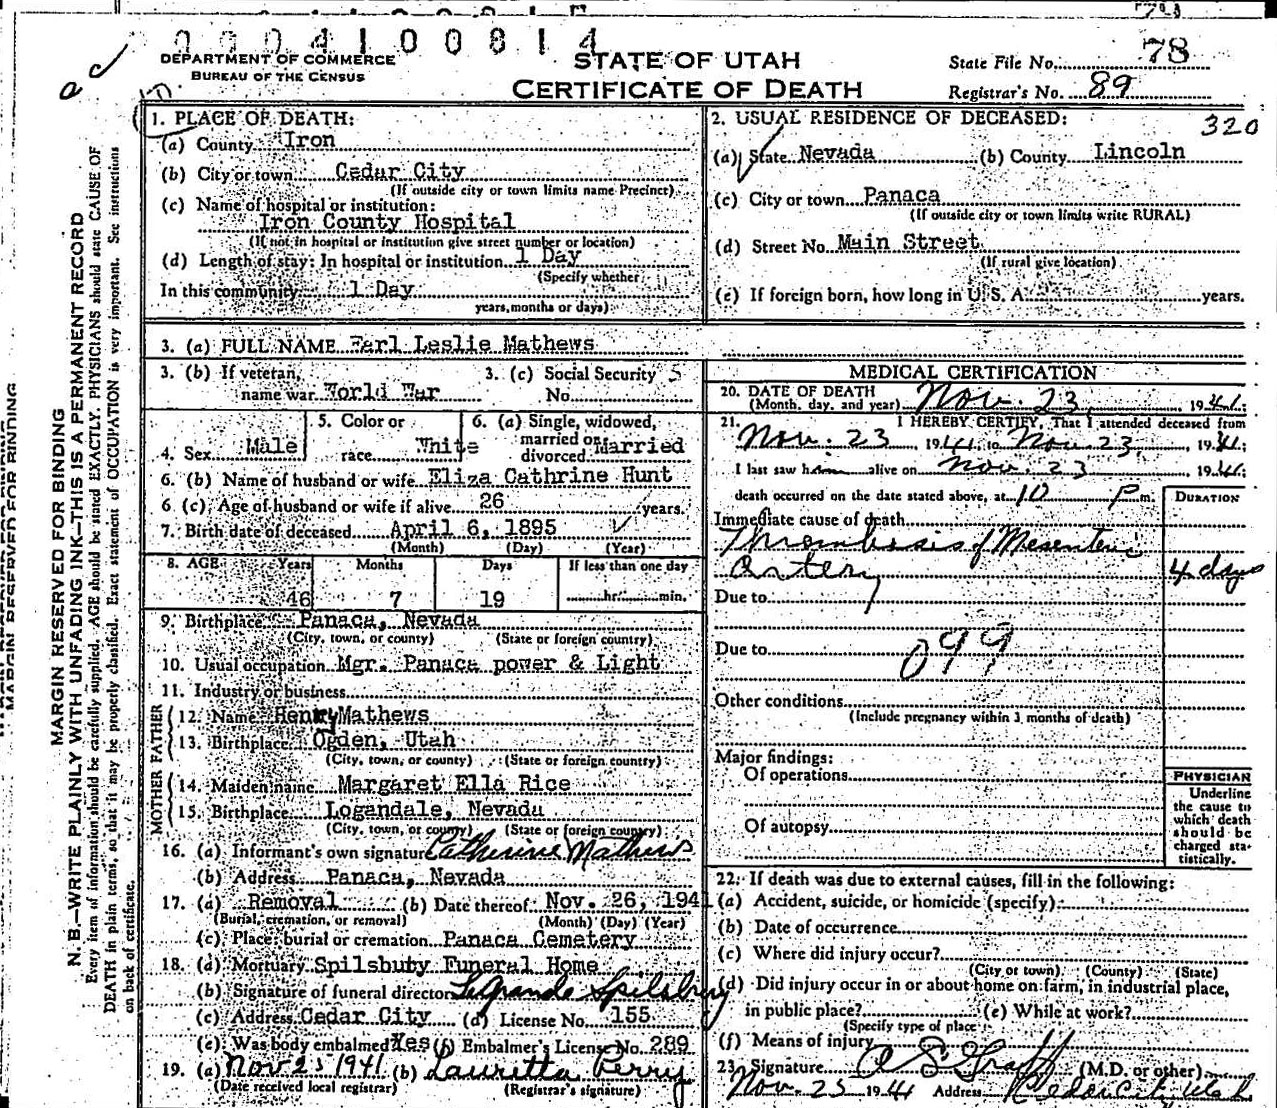 0004100814
DEPARTMENT OF COMMERCE
BUREAU OF THE CENSUS
STATE OF UTAH
CERTIFICATE OF DEATH
State File No. 78
Registrar's No. 89
320
1. PLACE OF DEATH:
(a) County Iron
(b) City or town Cedar City
(If outside city or town limits name Precinct)
(c) Name of hospital or institution:
Iron County Hospital
(If not in hospital or institution give street number or location)
(d) Length of stay: In hospital or institution 1 Day
(Specify whether
In this community 1 Day
years, months or days)
2. USUAL RESIDENCE OF DECEASED:
(a) State Nevada (b) County Lincoln
(c) City or town Panaca
(If outside city or town limits write RURAL)
(d) Street No. Main Street
(If rural give location)
(e) If foreign born, how long in U. S. A. years.
3. (a) FULL NAME Earl Leslie Mathews
3. (b) If veteran, name war World War
3. (c) Social Security No.
4. Sex Male
5. Color or race White
6. (a) Single, widowed, married or divorced Married
6. (b) Name of husband or wife Eliza Cathrine Hunt
6 (c) Age of husband or wife if alive 26 years.
7. Birth date of deceased April 6, 1895
(Month) (Day) (Year)
8. AGE Years Months Days If less than one day
46 7 19 hr. min.
9. Birthplace Panaca, Nevada
(City, town, or county) (State or foreign country)
10. Usual occupation Mgr. Panaca power & Light
11. Industry or business
FATHER
12. Name Henry Mathews
13. Birthplace Ogden, Utah
(City, town, or county) (State or foreign country)
MOTHER
14. Maiden name Margaret Ella Rice
15. Birthplace Logandale, Nevada
(City, town, or county) (State or foreign country)
16. (a) Informant's own signature Catherine Mathews
(b) Address Panaca, Nevada
17. (a) Removal (b) Date thereof Nov. 26, 1941
(Burial, cremation, or removal) (Month) (Day) (Year)
(c) Place: burial or cremation Panaca Cemetery
18. (a) Mortuary Spilsbury Funeral Home
(b) Signature of funeral director LaGrande Spilsbury
(c) Address Cedar City (d) License No. 155
(e) Was body embalmed Yes (f) Embalmer's License No. 289
19. (a) Nov 25 1941 (b) Lauretta Perry
(Date received local registrar) (Registrar's signature)
MEDICAL CERTIFICATION
20. DATE OF DEATH
(Month, day, and year) Nov. 23, 1941.
21. I HEREBY CERTIFY, That I attended deceased from
Nov. 23, 1941 to Nov. 23, 1941.
I last saw him alive on Nov. 23, 1941.
death occurred on the date stated above, at 10 P m.
DURATION
Immediate cause of death
Thrombosis of Mesenteric
Artery 4 days
Due to
Due to
099
Other conditions
(Include pregnancy within 3 months of death)
Major findings:
Of operations
Of autopsy
PHYSICIAN
Underline
the cause to
which death
should be
charged sta-
tistically.
22. If death was due to external causes, fill in the following:
(a) Accident, suicide, or homicide (specify)
(b) Date of occurrence
(c) Where did injury occur?
(City or town) (County) (State)
(d) Did injury occur in or about home on farm, in industrial place,
in public place? (e) While at work?
(Specify type of place)
(f) Means of injury
23. Signature (M.D. or other)
Nov. 25 1941 Address Cedar City Utah
MARGIN RESERVED FOR BINDING
N. B.—WRITE PLAINLY WITH UNFADING INK—THIS IS A PERMANENT RECORD
Every item of information should be carefully supplied. AGE should be stated EXACTLY. PHYSICIANS should state CAUSE OF
DEATH in plain terms, so that it may be properly classified. Exact statement of OCCUPATION is very important. See instructions
on back of certificate.
MARGIN RESERVED FOR BINDING